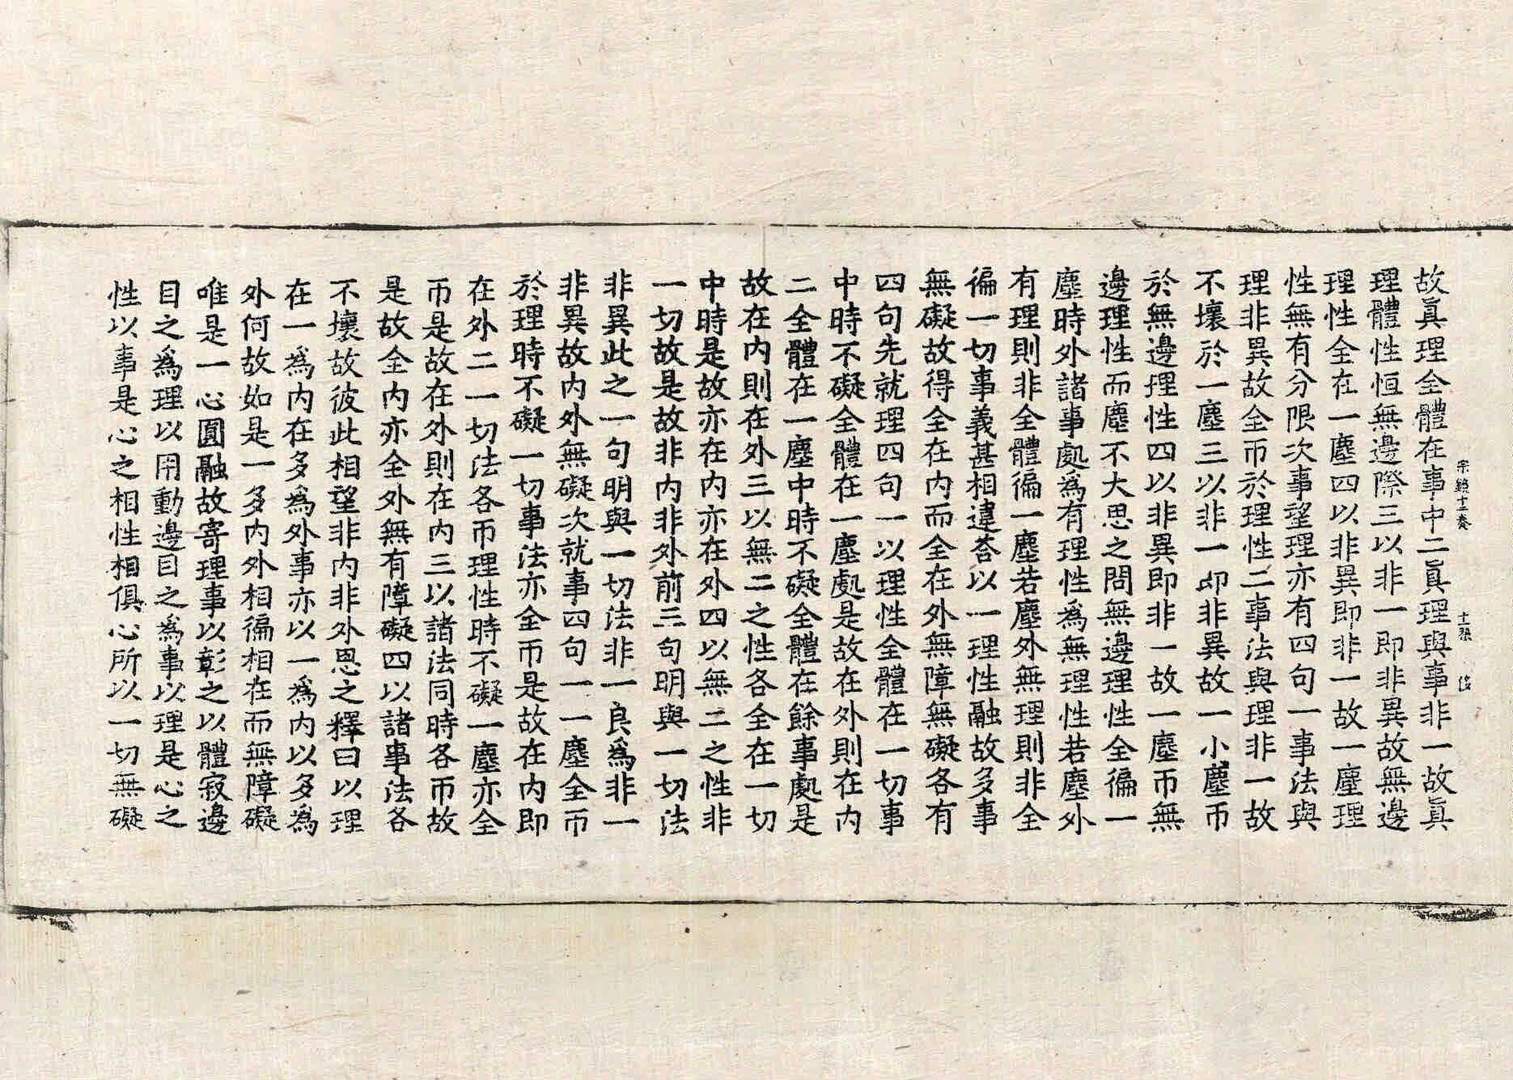 故眞理全體在事中二眞理與事非一故眞
理體性恒無邊際三以非一即非異故無邊
理性全在一塵四以非異即非一故一塵理
性無有分限次事望理亦有四句一事法與
理非異故全帀於理性二事法與理非一故
不壞於一塵三以非一卽非異故一小塵帀
於無邊理性四以非異即非一故一塵帀無
邊理性而塵不大思之問無邊理性全徧一
塵時外諸事處爲有理性爲無理性若塵外
有理則非全體徧一塵若塵外無理則非全
徧一切事義甚相違荅以一理性融故多事
無礙故得全在內而全在外無障無礙各有
四句先就理四句一以理性全體在一切事
中時不礙全體在一塵處是故在外則在內
二全體在一塵中時不礙全體在餘事處是
故在內則在外三以無二之性各全在一切
中時是故亦在內亦在外四以無二之性非
一切故是故非內非外前三句明與一切法
非異此之一句明與一切法非一良爲非一
非異故內外無礙次就事四句一一塵全帀
於理時不礙一切事法亦全帀是故在內即
在外二一切法各帀理性時不礙一塵亦全
帀是故在外則在內三以諸法同時各帀故
是故全內亦全外無有障礙四以諸事法各
不壞故彼此相望非內非外思之釋曰以理
在一爲內在多爲外事亦以一爲內以多爲
外何故如是一多內外相徧相在而無障礙
唯是一心圓融故寄理事以彰之以體寂邊
目之爲理以用動邊目之爲事以理是心之
性以事是心之相性相俱心所以一切無礙